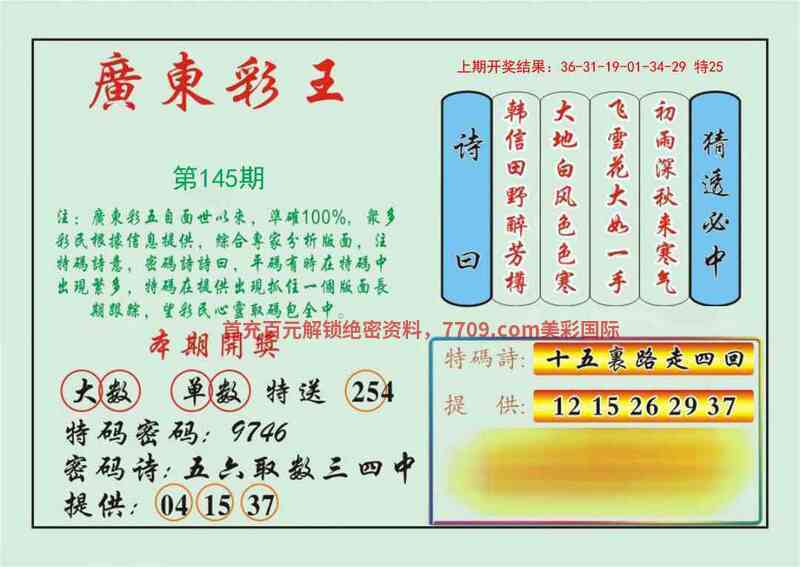 廣東彩王
第145期
注：廣東彩五自面世以來，準確100%，衆多
彩民根據信息提供，綜合專家分析版面，注
特碼詩意，密碼詩詩曰，平碼有時在特碼中
出現繁多，特碼在提供出現抓住一個版面長
期跟踪，望彩民心靈取碼包全中。
首充百元解锁绝密资料，7709.com美彩国际
本期開獎
大数 单数 特送 254
特码密码：9746
密码诗：五六取数三四中
提供：04 15 37
上期开奖结果：36-31-19-01-34-29 特25
猜透必中
初雨深秋来寒气
飞雪花大如一手
大地白风色色寒
韩信田野醉芳樽
诗曰
特码詩：十五裏路走四回
提供：12 15 26 29 37